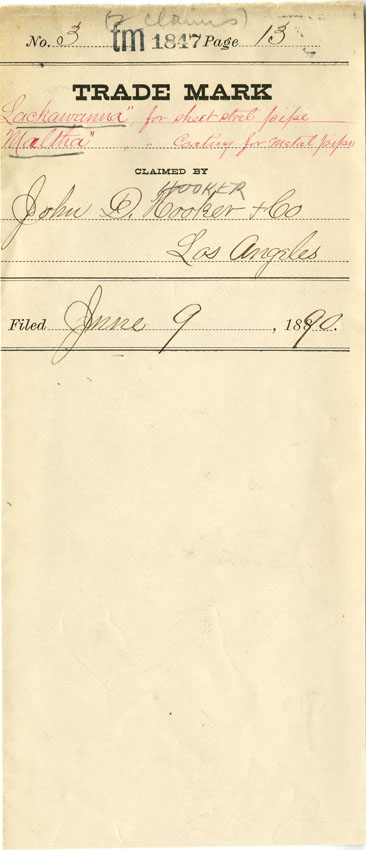 (2 claims)
No. 3 tm 1847 Page 13
TRADE MARK
Lackawanna" for sheet steel pipe
"Maltha" " " Coating for metal pipe
CLAIMED BY
HOOKER
John D. Hooker & Co
Los Angeles
Filed June 9, 1890.